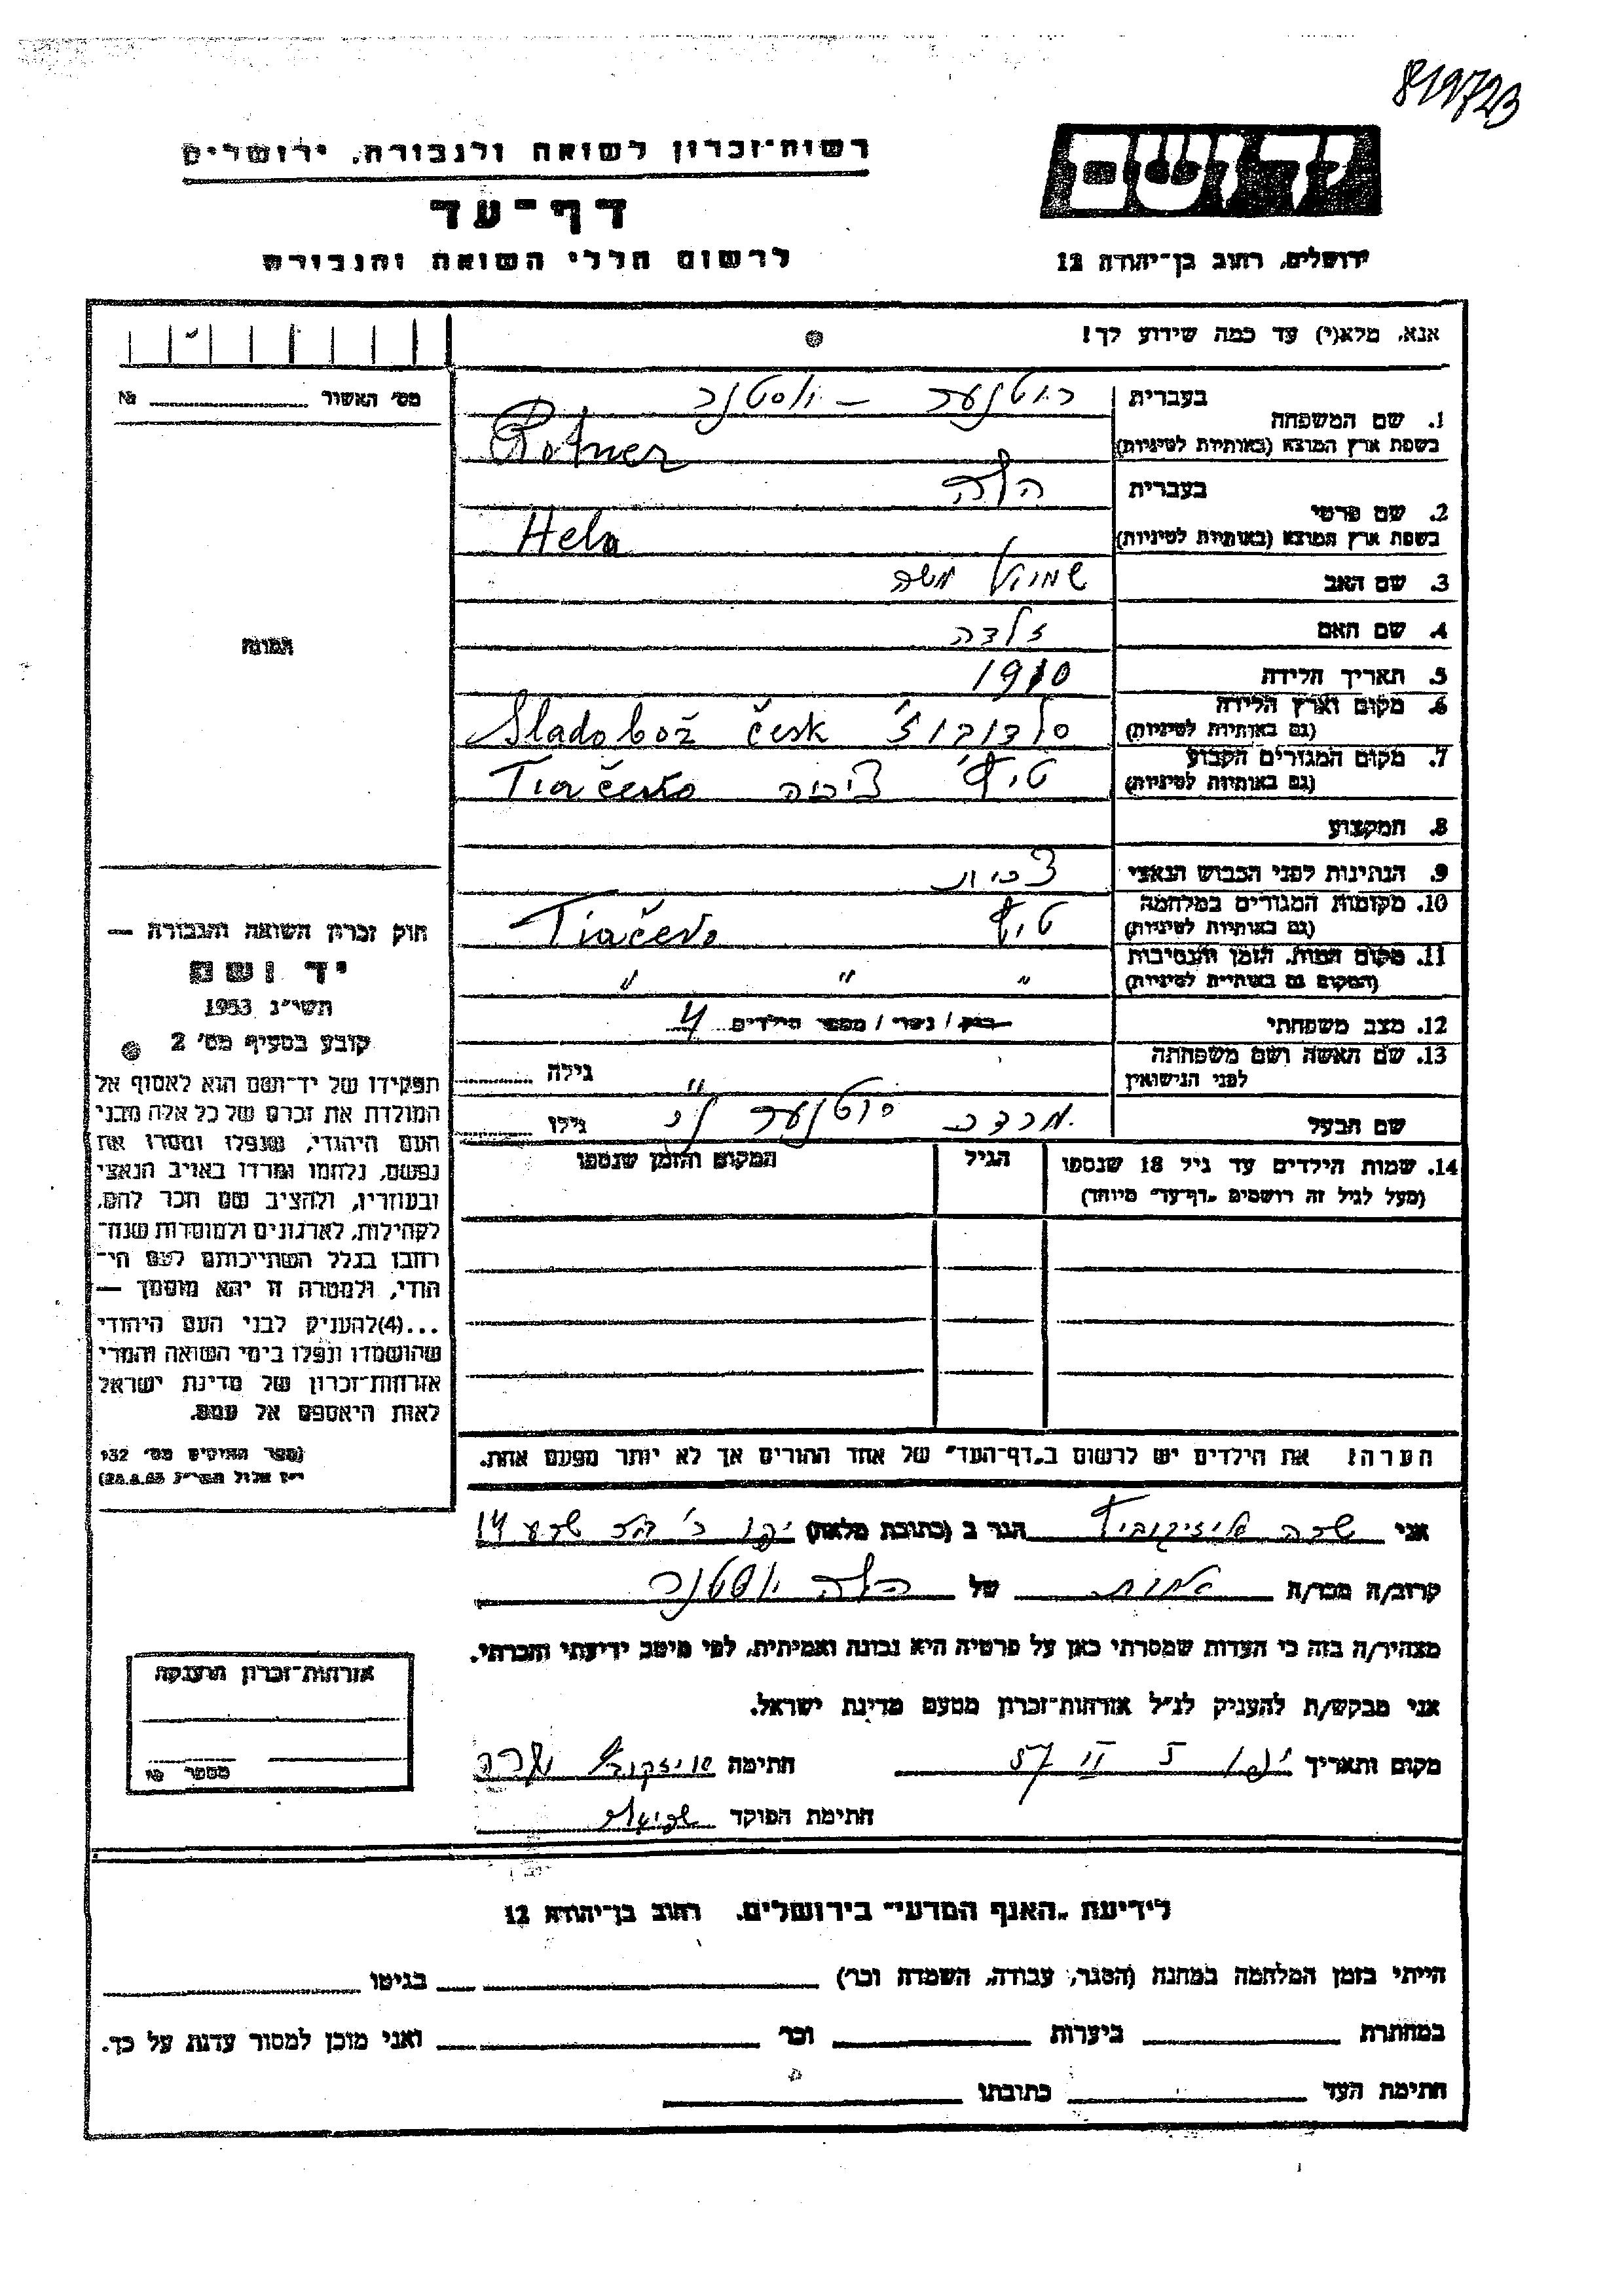 819723
רשות־זכרון לשואה ולגבורה, ירושלים
דף־עד
לרשום חללי השואה והגבורה
יד ושם
ירושלים, רחוב בן־יהודה 12
אנא, מלא(י) עד כמה שידוע לך!
מס׳ האשור № 
1. שם המשפחה
בעברית רוטנער –
בשפת ארץ המוצא (באותיות לטיניות) Rotner
2. שם פרטי
בעברית הלה
בשפת ארץ המוצא (באותיות לטיניות) Hela
3. שם האב שמואל משה
4. שם האם זלדה
5. תאריך הלידה 1910
6. מקום וארץ הלידה
(גם באותיות לטיניות) סלדובוז׳ Sladobož česk
7. מקום המגורים הקבוע
(גם באותיות לטיניות) טיץ׳ Tiačevo
8. המקצוע
9. הנתינות לפני הכבוש הנאצי צ׳כית
10. מקומות המגורים במלחמה
(גם באותיות לטיניות) טיץ׳ Tiačevo
11. מקום המות, הזמן והנסיבות
(המקום גם באותיות לטיניות) " " "
12. מצב משפחתי רווק / נשוי / מספר הילדים 4
13. שם האשה ושם משפחתה
לפני הנישואין " גילה
שם הבעל מרדכי רוטנער גילו
14. שמות הילדים עד גיל 18 שנספו
(מעל לגיל זה רושמים „דף־עד״ מיוחד)
הגיל
המקום והזמן שנספו
הערה: את הילדים יש לרשום ב„דף־העד״ של אחד ההורים אך לא יותר מפעם אחת.
תמונה
חוק זכרון השואה והגבורה —
יד ושם
תשי״ג 1953
קובע בסעיף מס׳ 2
תפקידו של יד־ושם הוא לאסוף אל
המולדת את זכרם של כל אלה מבני
העם היהודי, שנפלו ומסרו את
נפשם, נלחמו ומרדו באויב הנאצי
ובעוזריו, ולהציב שם וזכר להם,
לקהילות, לארגונים ולמוסדות שנח־
רבו בגלל השתייכותם לעם הי־
הודי, ולמטרה זו יהא מוסמך —
...(4) להעניק לבני העם היהודי
שהושמדו ונפלו בימי השואה והמרי
אזרחות־זכרון של מדינת ישראל
לאות היאספם אל עמם.
(ספר החוקים מס׳ 132
י״ז אלול תשי״ג 28.8.53)
אני שרה אייזיקוביץ הגר ב (כתובת מלאה) יפו 14
קרוב/ה מכר/ה אחות של הלה
מצהיר/ה בזה כי העדות שמסרתי כאן על פרטיה היא נכונה ואמיתית, לפי מיטב ידיעתי והכרתי.
אני מבקש/ת להעניק לנ״ל אזרחות־זכרון מטעם מדינת ישראל.
מקום ותאריך יפו 5 VI 57 חתימה אייזקוביץ שרה
חתימת הפוקד
אזרחות־זכרון הוענקה
מספר №
לידיעת „האגף המדעי״ בירושלים, רחוב בן־יהודה 12
הייתי בזמן המלחמה במחנה (הסגר, עבודה, השמדה וכו׳) בגיטו
במחתרת ביערות וכו׳ ואני מוכן למסור עדות על כך.
חתימת העד כתובתו